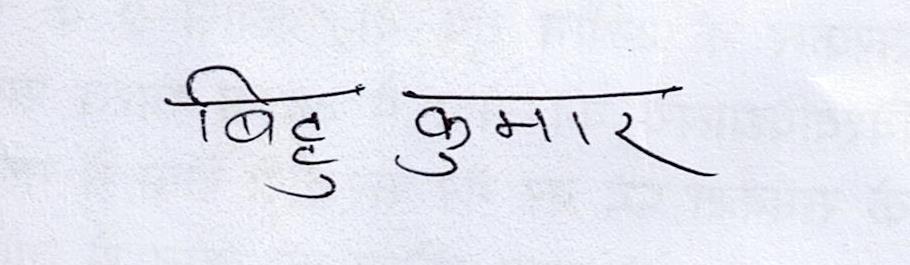 बिट्टु कुमार